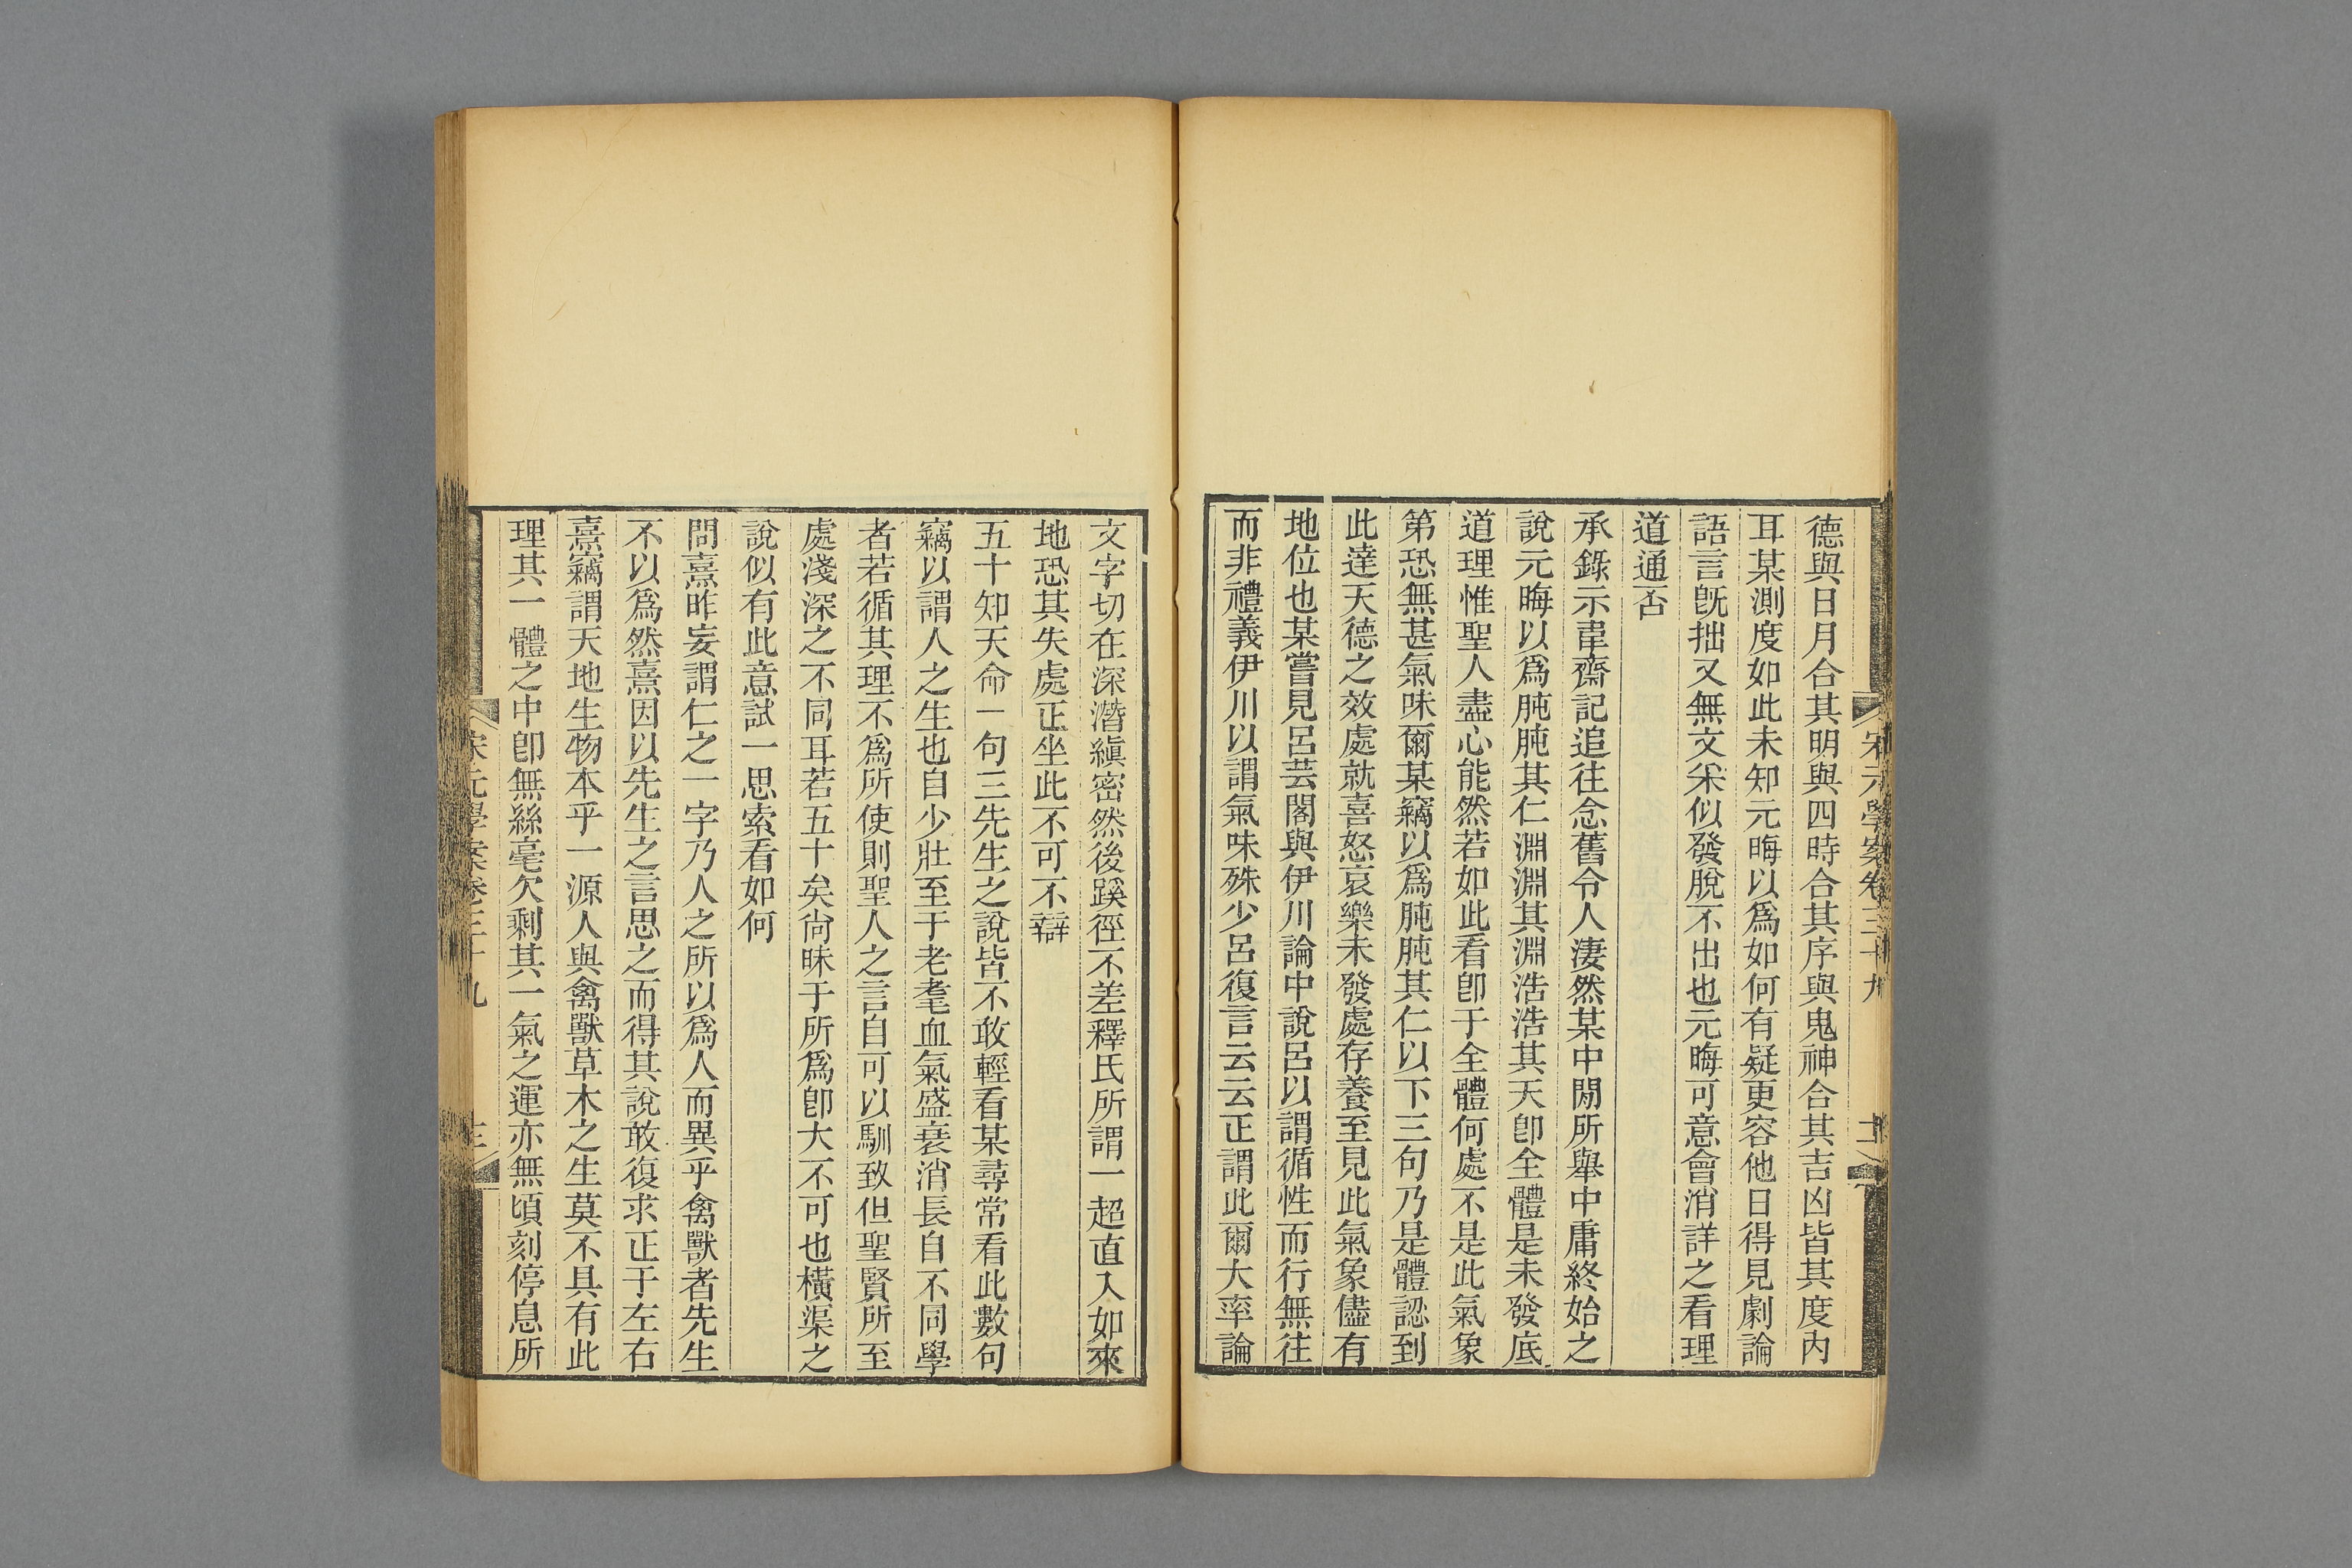 宋元學案卷三十九
德與日月合其明與四時合其序與鬼神合其吉凶皆其度內
耳某測度如此未知元晦以爲如何有疑更容他日得見劇論
語言旣拙又無文采似發脫不出也元晦可意會消詳之看理
道通否
承錄示韋齋記追往念舊令人淒然某中閒所舉中庸終始之
說元晦以爲肫肫其仁淵淵其淵浩浩其天卽全體是未發底
道理惟聖人盡心能然若如此看卽于全體何處不是此氣象
第恐無甚氣味爾某竊以爲肫肫其仁以下三句乃是體認到
此達天德之效處就喜怒哀樂未發處存養至見此氣象儘有
地位也某嘗見呂芸閣與伊川論中說呂以謂循性而行無往
而非禮義伊川以謂氣味殊少呂復言云云正謂此爾大率論
文字切在深潛縝密然後蹊徑不差釋氏所謂一超直入如來
地恐其失處正坐此不可不辯
五十知天命一句三先生之說皆不敢輕看某尋常看此數句
竊以謂人之生也自少壯至于老耄血氣盛衰消長自不同學
者若循其理不爲所使則聖人之言自可以馴致但聖賢所至
處淺深之不同耳若五十矣尙昧于所爲卽大不可也橫渠之
說似有此意試一思索看如何
問熹昨妄謂仁之一字乃人之所以爲人而異乎禽獸者先生
不以爲然熹因以先生之言思之而得其說敢復求正于左右
熹竊謂天地生物本乎一源人與禽獸草木之生莫不具有此
理其一體之中卽無絲毫欠剩其一氣之運亦無頃刻停息所
宋元學案卷三十九